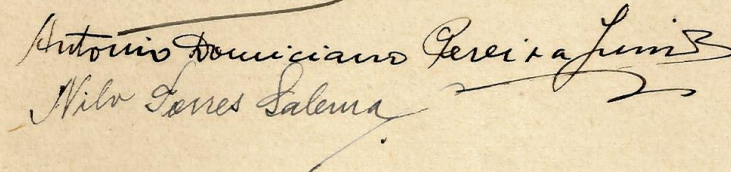 Antonio Domiciano Pereira Junior
Nilo Torres Salema